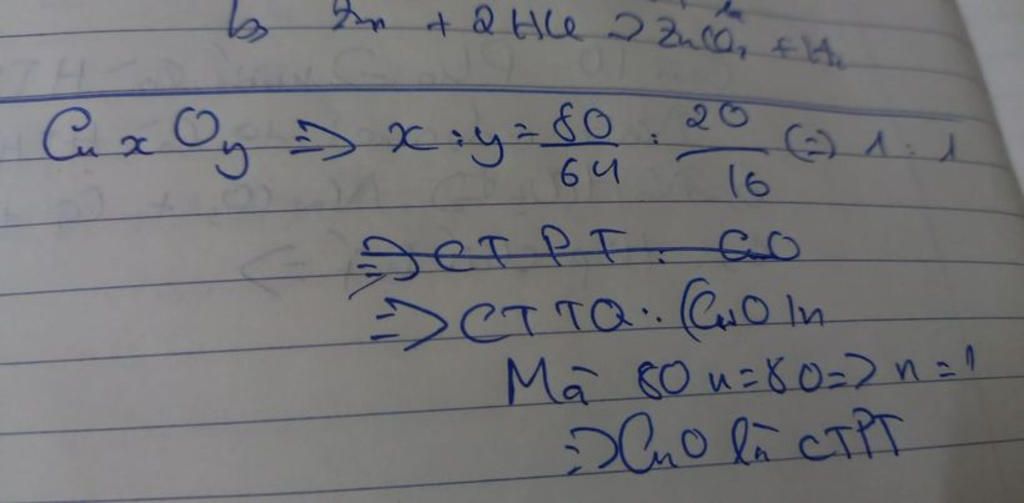 b, Zn + 2HCl => ZnCl₂ + H₂
CuxOy => x : y = 80/64 : 20/16 (=) 1 : 1
=> CTPT : CuO
=> CTTQ : (CuO)n
Mà 80n = 80 => n = 1
=> CuO là CTPT